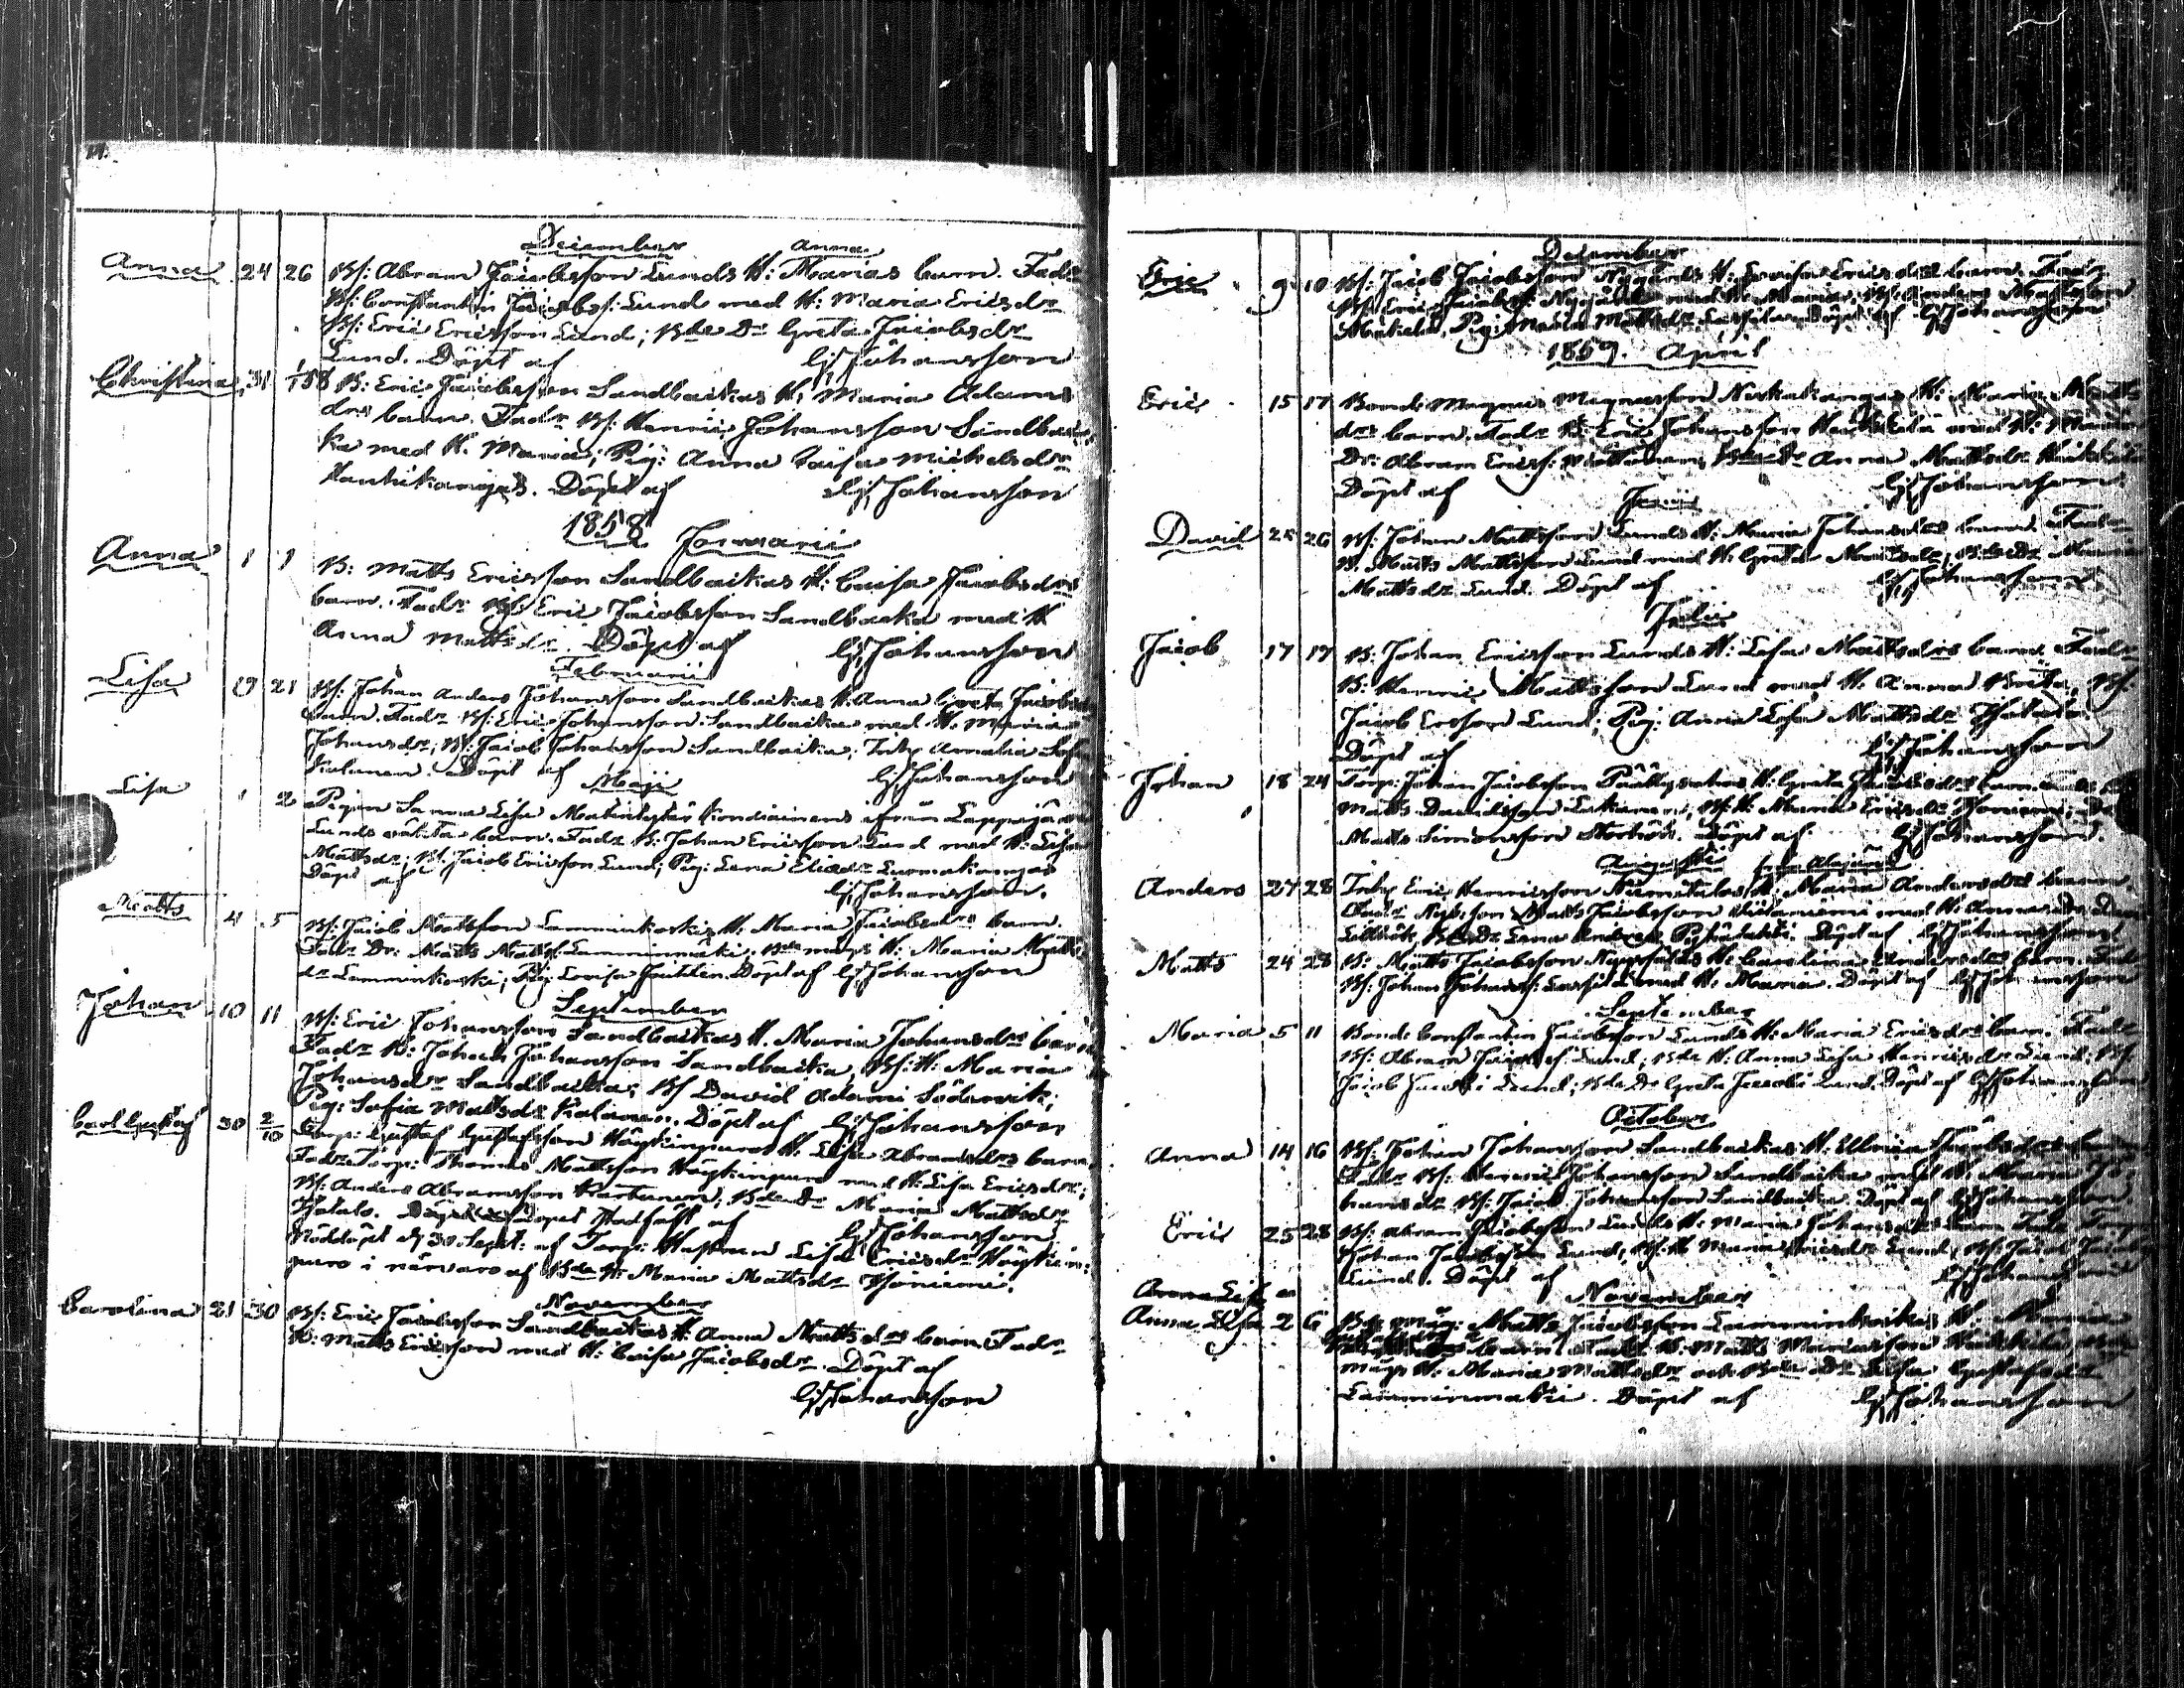 December
Anna 24 26 Bs: Abram Jacobsson Lunds H: Anna Marias barn. Fadr
Bs: Constantin Jacobs: Lund med H: Maria Ericsdr
Bs: Eric Ericsson Lund; Bde Dr Greta Jacobsdr
Lund. Döpt af GJohansson
Christina 31 1/158 B: Eric Jacobsson Sandbackas H: Maria Adams
drs barn. Fadr Bs: Henric Johansson Sandbac
ka med H. Maria; Pig: Anna Caisa Michelsdr
Hanhikangas. Döpt af GJohansson
1858 Januarii
Anna 1 1 B: Matts Ericsson Sandbackas H: Caisa Jacobsdrs
barn. Fadr Bs: Eric Jacobsson Sandbacka med H
Anna Mattsdr. Döpt af GJohansson
Februarii
Lisa 19 21 Bs: Johan Anders Johansson Sandbackas H. Anna Greta Jacobsdrs
barn. Fadr Bs: Eric Johansson Sandbacka med H. Maria
Johansdr; Bs: Jacob Johansson Sandbacka; Inhy Amalia Sofia
Kalinen. Döpt af GJohansson
Maji
Lisa 1 2 Pigan Sanna Lisa Mattsdr ifrån Lappajärvi
Lunds oäkta barn. Fadr B: Johan Ericsson Lund med H: Lisa
Mattsdr; Bs. Jacob Ericsson Lund; Pig: Lena Eliaedr Luomakangas
Döpt af GJohansson.
Matts 4 5 Bs: Jacob Mattsson Lamminkoskis H: Maria Jacobsdrs barn.
Fadr Dr: Matts Matts: Lamminmäki; Bde mågs H: Maria Matts
dr Lamminkoski; Pig: Lovisa Döpt af GJohansson
September
Johan 10 11 Bs: Eric Johansson Sandbackas H. Maria Johansdrs barn
Fadr B: Johan Johansson Sandbacka, Bs: H: Maria
Johansdr Sandbacka; Bs David Adami Södervik;
Pig: Sofia Mattsdr Kalinen. Döpt af GJohansson
Carl Gustaf 30 2/10 Torp: Gustaf Gustafsson Höykinpuro H. Lisa Abramsdrs barn
Fadr Torp: Thomas Mattsson Höykinpuro med H: Lisa Ericsdr;
Bs: Anders Abramsson Kortunen; Bde Dr Maria Mattsdr
Döpt Stadfäst af GJohansson
Nöddöpt d 30 Sept: af Torp: Hustrun Lisa Ericsdr Höykin
puro i närvaro af Bde H: Maria Mattsdr Honiemi.
November
Carolina 21 30 Bs: Eric Jacobsson Sandbackas H: Anna Mattsdrs barn. Fadr
B: Matts Ericsson med H: Caisa Jacobsdr. Döpt af
GJohansson
December
Eric 9 10 Bs: Jacob Jacobsson Nygårds H: Lovisa Ericsdrs barn. Fadr
Bs: Eric Jacobs: Nygård med H: Maria, Bs: Anders Mattsson
Mäkelä, Pig: Maria Mattsdr Döpt af GJohansson
1859. April
Eric 15 17 Bond: Magnus Magnusson H: Maria Matts
drs barn. Fadr B: Eric Johansson Heikkilä med H: Maria
Dr: Abram Ericss: Bde Dr Anna Mattsdr Heikkilä
Döpt af GJohansson
Junii
David 25 26 Bs: Johan Mattsson Lunds H: Maria Johansdrs barn. Fadr
B. Matts Mattsson Lund med H: Greta Mattsdr; Bde Dr Maria
Mattsdr Lund. Döpt af GJohansson
Julii
Jacob 17 17 B: Johan Ericsson Lunds H: Lisa Mattsdrs barn. Fadr
B: Henric Mattsson Lund med H: Anna Brita, Bs:
Jacob Ersson Lund; Pig: Anna Lisa Mattsdr
Döpt af GJohansson
Johan 18 24 Torp: Johan Jacobsson H: Greta Jacobsdrs barn. Fadr
Matts Davidsson Bs: H: Maria Ericsdr Honiemi; Dr
Matts Simonsson Storhök. Döpt af GJohansson.
Augusti
Anders 27 28 Inhy Eric Henricsson H: Maria Andersdrs barn.
Fadr Matts Jacobsson med H: Anna; Dr
Lillhök, Bde Dr Lena Döpt af GJohansson
Matts 24 28 B: Matts Jacobsson H: Carolina Andersdrs barn. Fadr
Bs: Johan Johanss: med H. Maria. Döpt af GJohansson
September
Maria 5 11 Bond: Constantin Jacobsson Lunds H: Maria Ericsdrs barn. Fadr
Bs: Abram Jacobs: Lund; Bde H: Anna Lisa Henricsdr Lund; Bs:
Jacob Jacobi Lund; Bde Dr Greta Jacobi Lund. Döpt af GJohansson
October
Anna 14 16 Bs: Johan Johansson Sandbackas H: Ulrica Jacobsdrs barn
Fadr Bs: Henric Johansson Sandbacka med H. Maria Jo
hansdr Bs: Jacob Johansson Sandbacka. Döpt af GJohansson.
Eric 25 28 Bs: Abram Jacobsson Lunds H: Maria Johansdrs barn Fadr Torp
Johan Jacobsson Lund, Bs: H Maria Ericsdr Lund, Bs: Jacob
Lund. Döpt af GJohansson
November
Anna Lis
Anna Lisa 2 6 Bde måg: Matts Jacobsson Lamminkoskis H: Maria
barn. Fadr B: Matts Heikkilä,
mågs H: Maria Mattsdr och Bde Dr Lisa Gustafsdr
Lamminmäki. Döpt af GJohansson